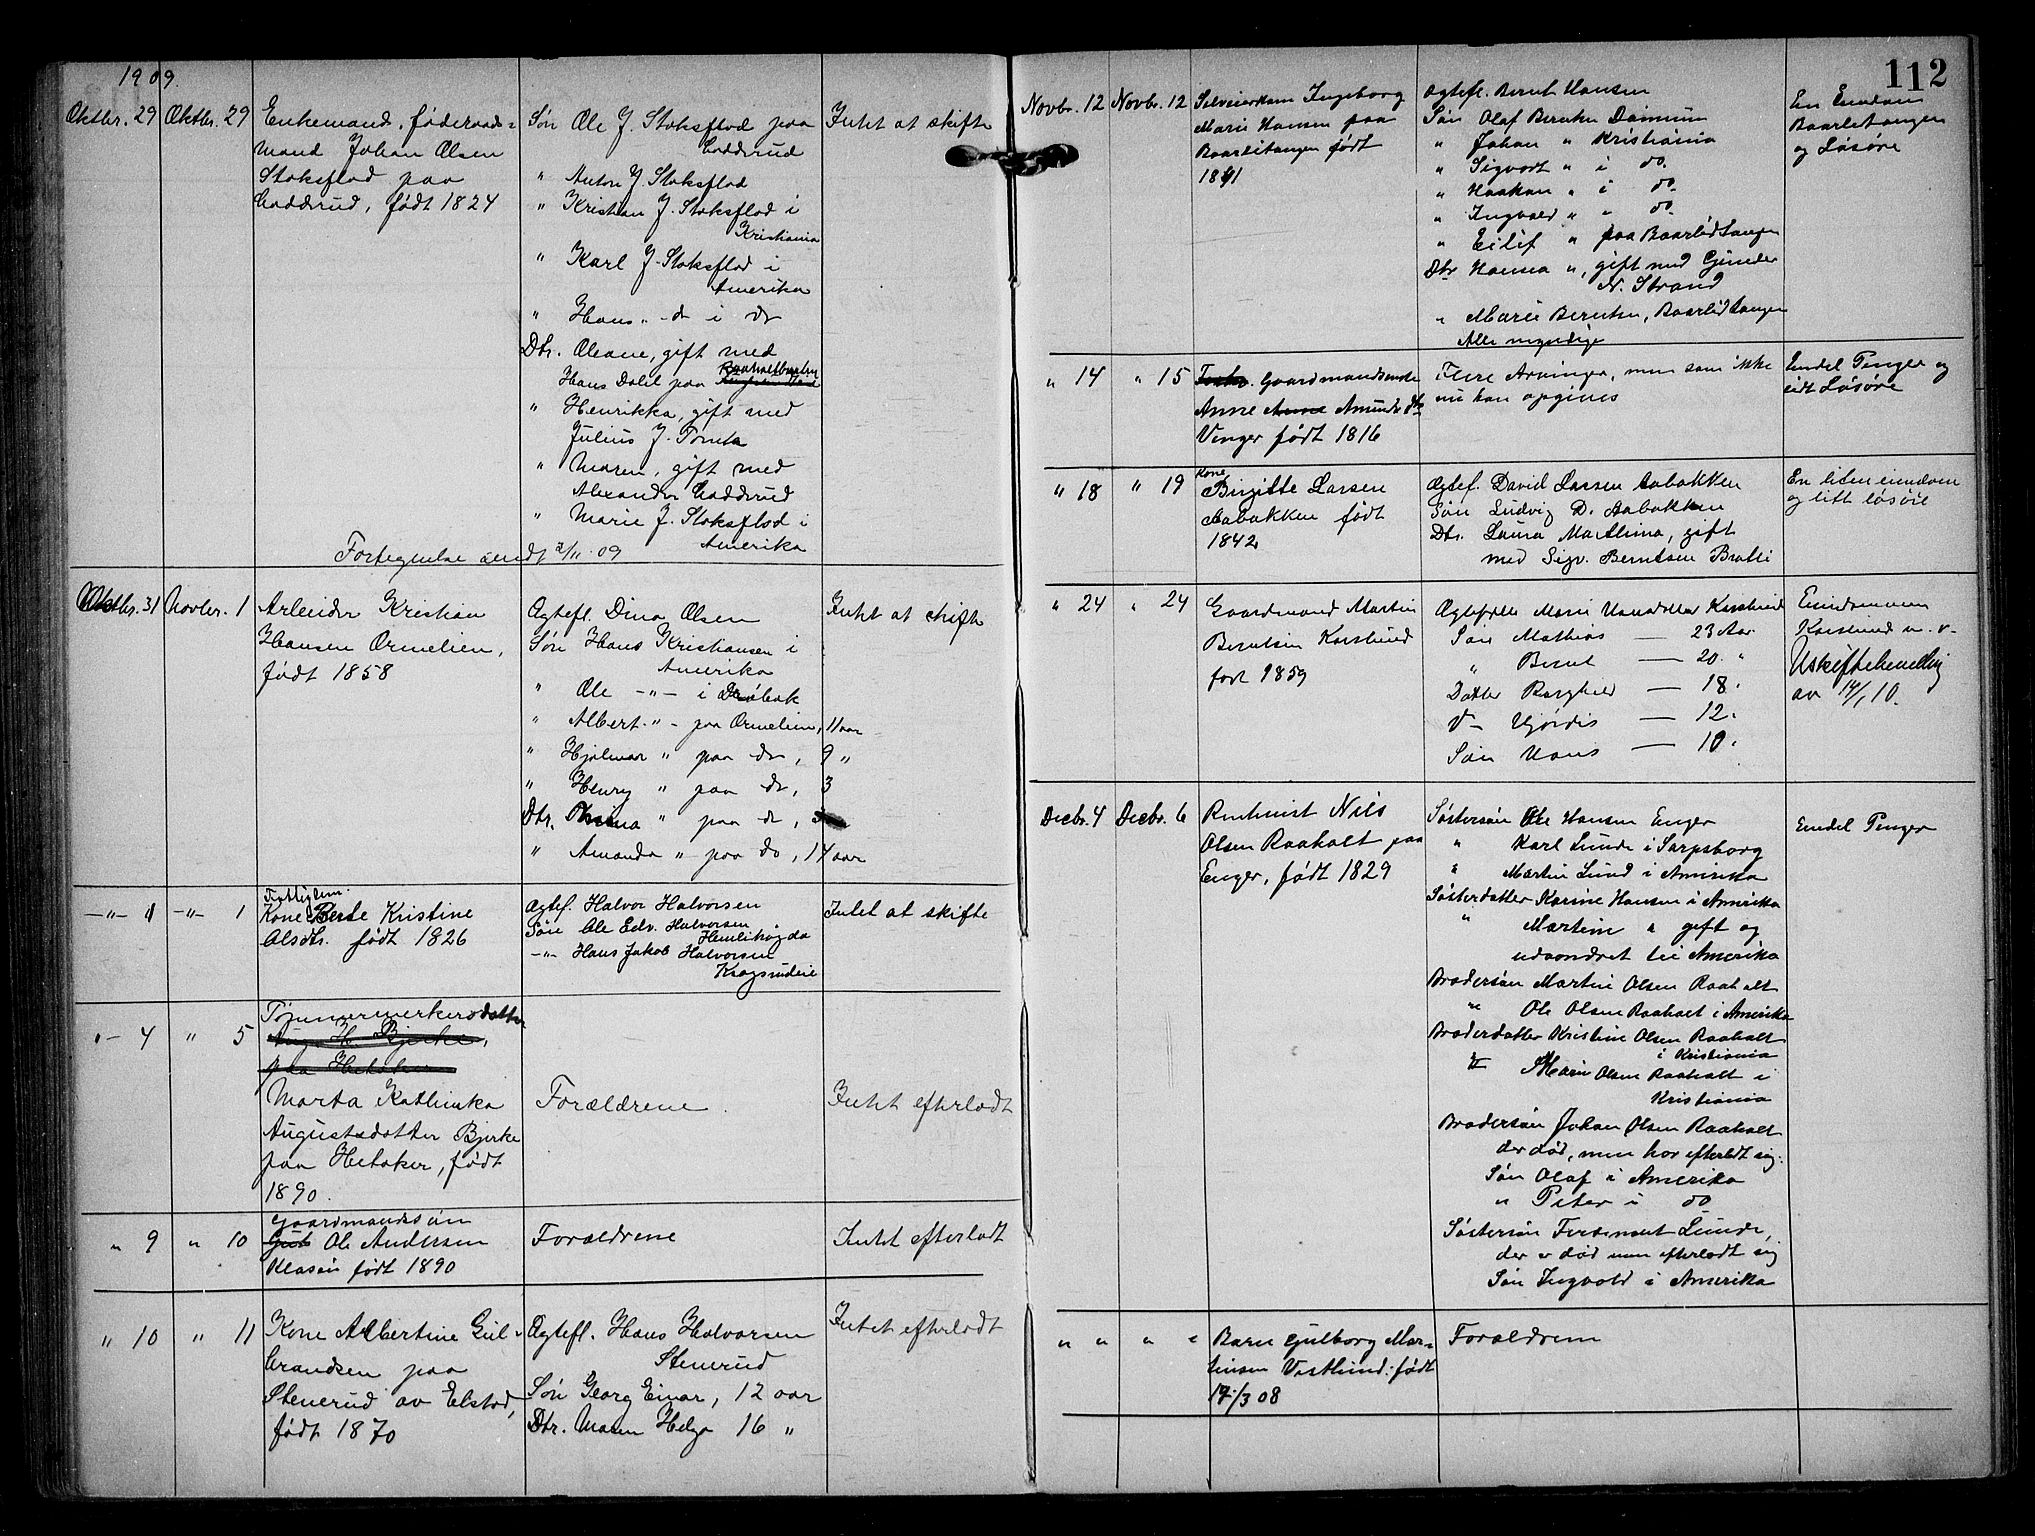 1909.
Oktbr. 29 Oktbr. 29 Enkemand, føderaads-
mand Johan Olsen
Stoksflod paa
Loddrud, født 1824
Søn Ole J. Stoksflod paa
Loddrud
" Anton J. Stoksflod
" Kristian J. Stoksflod i
Kristiania
" Karl J. Stoksflod i
Amerika
" Hans " - do i do
Dtr. Oleane, gift med
Hans Dalil paa
" Henrikka, gift med
Julius J. Tomta
" Maren, gift med
Alexander Loddrud
" Marie J. Stoksflod i
Amerika
Intet at skifte
Fortegnelse sendt 2/11 09
Oktbr. 31 Novbr. 1 Arbeider Kristian
Hansen Ormelien,
født 1858
Ægtefl. Dina Olsen
Søn Hans Kristiansen i
Amerika
" Ole -"- i Drøbak
" Albert " - paa Ormelien, 11 aar
" Hjalmar " paa do, 9 "
" Henry " paa do, 3
Dtr. " paa do,
" Amanda " paa do, 14 aar
Intet at skifte
-"- 1 -"- 1 Fattiglem.
Kone Berte Kristine
Olsdtr. født 1826
Ægtef. Halvor Halvorsen
Søn Ole Edv. Halvorsen
-"- Hans Jakob Halvorsen
Intet at skifte
"- 4 " 5 Tømmermerkersdatter
Aug. H. Bjerke,
paa Hetaker
Marta Kathinka
Augustsdatter Bjerke
paa Hetaker, født
1890.
Forældrene
Intet efterladt
" 9 " 10 Gaardmandssøn
Gut Ole Andersen
født 1890
Forældrene
Intet efterladt
" 10 " 11 Kone Albertine Gul-
brandsen paa
Stenerud av Elstad,
født 1870
Ægtefl. Hans Halvorsen
Stenerud
Søn Georg Einar, 12 aar
Dtr. Maren Helga 16 "
Intet efterladt
112
Novbr. 12 Novbr. 12 Selveierkone Ingeborg
Marie Hansen paa
Baarlitangen født
1841
Ægtefl. Bernt Hansen
Søn Olaf Berntsen
" Johan " Kristiania
" Sigvart " i do.
" Haakon " i do.
" Ingvald " " do.
" Eilif " paa Baarlidtangen
Dtr Hanna ", gift med Gunder
N. Strand
" Marie Berntsen, Baarlidtangen
Alle myndige
En Eiendom
Baarlitangen
og Løsøre
" 14 " 15 Gaardmandsenke
Anne Amunds dtr
Venger født 1816
Flere Arvinger, men som ikke
nu kan opgives
Endel Penger og
lidt Løsøre
" 18 " 19 Kone
Birgitte Larsen
Aabakken født
1842
Ægtef. David Larsen Aabakken
Søn Ludvig D. Aabakken
Dtr. Laura Mathina, gift
med Sigv. Berntsen Bratli
En liten eiendom
og litt løsøre
" 24 " 24 Gaardmand Martin
Berntsen Karslund
født 1859
Ægtefælle Marie Karslund
Søn Mathias — 23 Aar
" Bernt — 20 "
Datter Borghild — 18 "
d— Hjørdis — 12 "
Søn Hans — 10 "
Eiendommen
Karslund m. v.
Uskiftebevilling
av 14/1 10.
Decbr. 4 Decbr. 6 Rentenist Nils
Olsen Raaholt paa
Enger, født 1829
Søstersøn Ole Hansen Enger
" Karl Lunde i Sarpsborg
" Martin Lund i Amerika
Søsterdatter Karine Hansen i Amerika
" Martine " gift og
udvandret til Amerika
Brodersøn Martin Olsen Raaholt
" Ole Olsen Raaholt i Amerika
Broderdatter Kristine Olsen Raaholt
i Kristiania
" Marie Olsen Raaholt i
Kristiania
Brodersøn Johan Olsen Raaholt
der død, men har efterladt sig:
Søn Olaf i Amerika
" Peter i do
Søstersøn Ferdinant Lunde,
der er død men efterladt sig
Søn Ingvold i Amerika
Endel Penger
" " " " Barn Gulborg Mar-
tinsen Vestlund: født
17/3 08
Forældrene